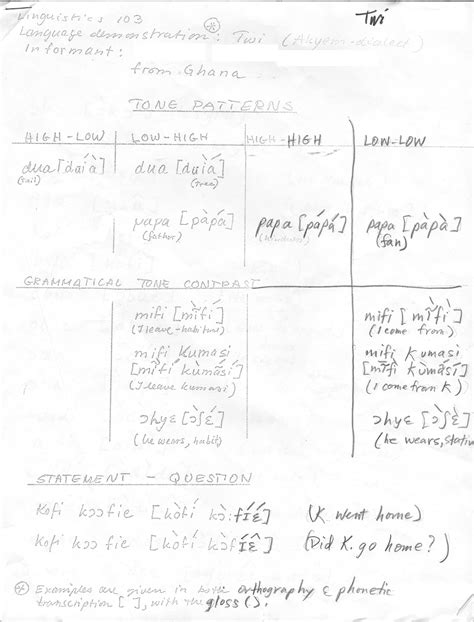 Linguistics 103
Twi
Language demonstration: Twi (Akyem-dialect)
Informant:
from Ghana
TONE PATTERNS
HIGH-LOW LOW-HIGH HIGH-HIGH LOW-LOW
dua dua
(tail) (tree)
papa [pàpá] papa [pápá] papa [pàpà]
(father) (fan)
GRAMMATICAL TONE CONTRAST
mifi mifi
(I leave-habitual) (I come from)
mifi Kumasi mifi Kumasi
(I leave Kumasi) (I come from K)
ɔhyɛ ɔhyɛ
(he wears, habit) (he wears, stative
STATEMENT - QUESTION
Kofi kɔɔ fie (K. went home)
Kofi kɔɔ fie (Did K. go home?)
* Examples are given in both orthography & phonetic
transcription [ ], with the gloss ().